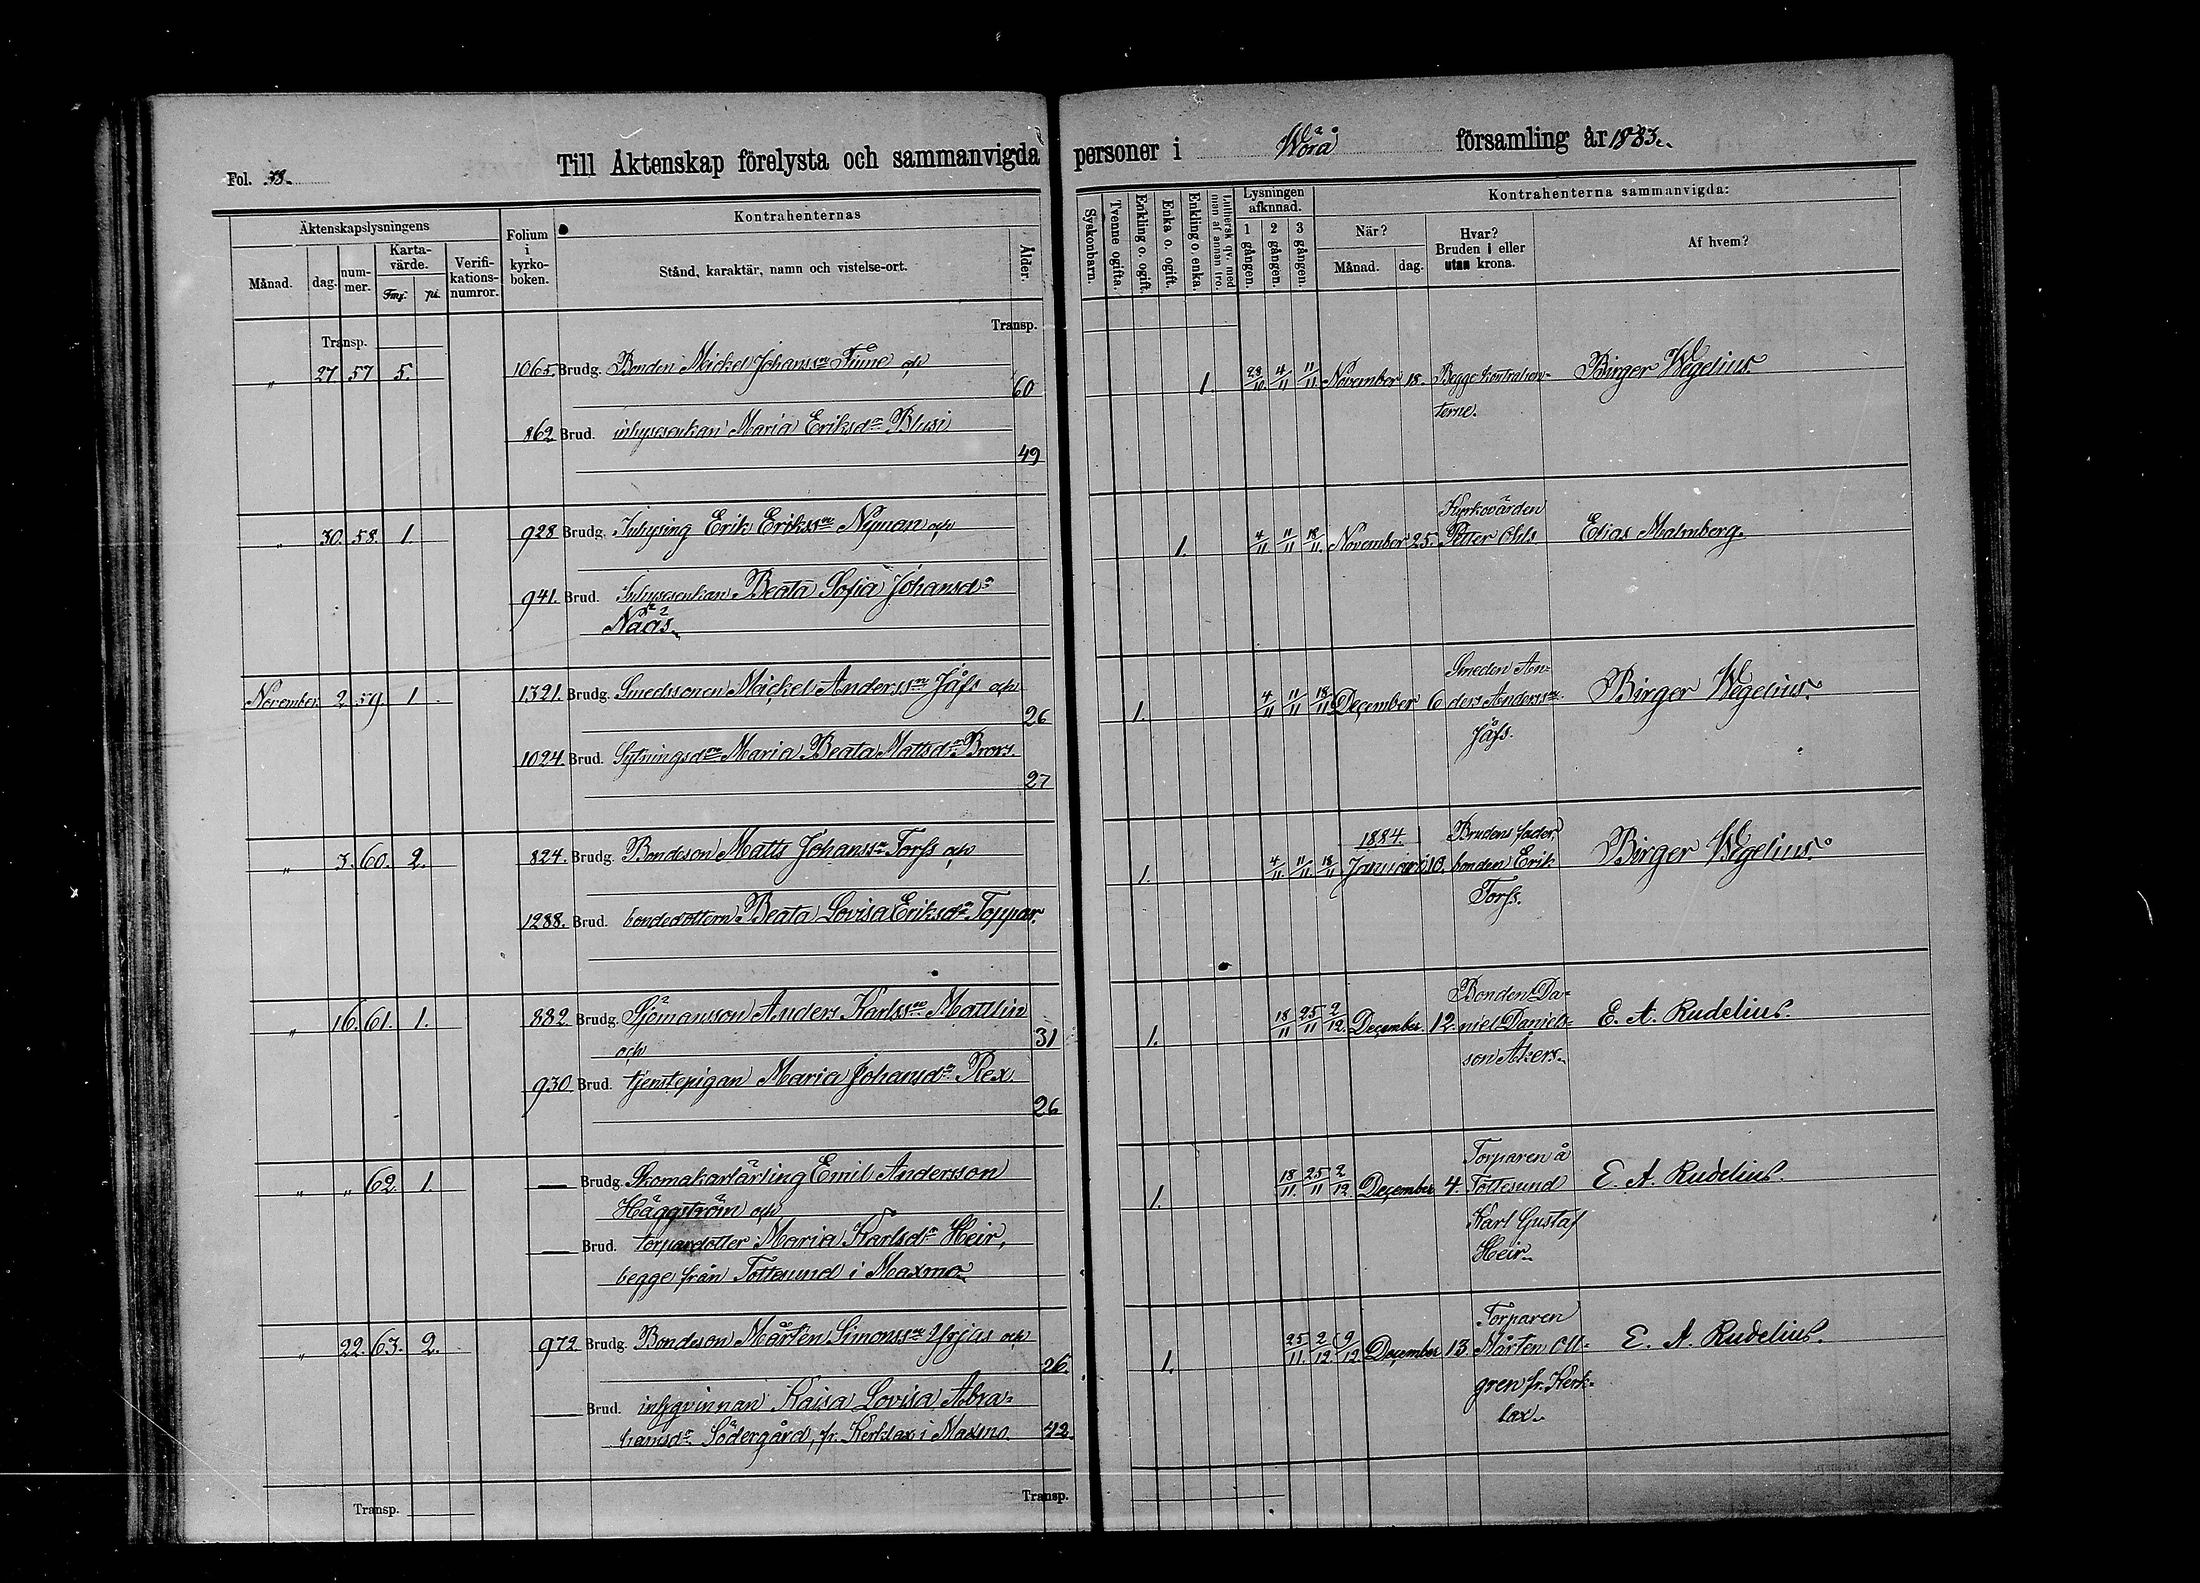 Fol. 33.
Till Äktenskap förelysta och sammanvigda personer i Wörå församling år 1883.
Äktenskapslysningens
Månad.
dag.
num-
mer.
Karta-
värde.
Fmf.
pi.
Verifi-
kations-
numror.
Folium
i
kyrko-
boken.
Kontrahenternas
Stånd, karaktär, namn och vistelse-ort.
Ålder.
Syskonbarn.
Tvenne ogifta.
Enkling o. ogift.
Enka o. ogift.
Enkling o. enka.
Luthersk qv. med
man af annan tro.
Lysningen
afkunnad.
1 gången.
2 gången.
3 gången.
Kontrahenterna sammanvigda:
När?
Månad.
dag.
Hvar?
Bruden i eller
utan krona.
Af hvem?
Transp.
Transp.
" 27 57 5. 1065. Brudg. Bonden Mickel Johanss:n Finne och 60
862 Brud. inhysesenkan Maria Eriksd:r Blusi 49
1. 28/10 4/11 11/11 November 18. Begge kontrahen-
terne.
Birger Wegelius
" 30. 58. 1. 928 Brudg. Inhysing Erik Erikss:n Nyman och
941. Brud. Inhysesenkan Beata Sofia Johansd:r
Nääs.
1. 4/11 11/11 18/11. November 25. Kyrkovärden
Petter Ohls
Elias Malmberg.
November. 2 59. 1 1321. Brudg. Smedssonen Mickel Anderss:n Jåfs och 26
1024. Brud. Sytningsd:n Maria Beata Mattsd:r Brors 27
1. 4/11 11/11 18/11 December 6 Smeden An-
ders Anderss:n
Jåfs.
Birger Wegelius.
" 3. 60. 2. 824. Brudg. Bondeson Matts Johanss:n Torfs och
1288. Brud. bondedottern Beata Lovisa Eriksd:r Toppar.
1. 4/11. 11/11. 18/11 1884.
Januari 10. Brudens fader,
bonden Erik
Torfs.
Birger Wegelius.
" 16. 61. 1. 882. Brudg. Sjömansson Anders Karlss:n Mattlin
och 31
930 Brud. tjenstepigan Maria Johansd:r Rex 26
1. 18/11 25/11 2/12. December. 12. Bonden Da-
niel Daniels-
son Akers.
E. A. Rudelius.
" " 62. 1. — Brudg. Skomakarlärling Emil Andersson
Häggström och
— Brud. torparedotter Maria Karlsd:r Heir,
begge från Tottesund i Maxmo
1. 18/11. 25/11 2/12 December 4. Torparen å
Tottesund
Karl Gustaf
Heir
E. A. Rudelius.
" 22. 63. 2. 972 Brudg. Bondeson Mårten Simonss:n Yrjas och 26.
— Brud. inhqvinnan Kaisa Lovisa Abra-
hamsd:r Södergård, fr. Kerklax i Maxmo 42
1. 25/11. 2/12. 9/12. December 13. Torparen
Mårten Oll-
gren fr. Kerk-
lax.
E. A. Rudelius.
Transp.
Transp.